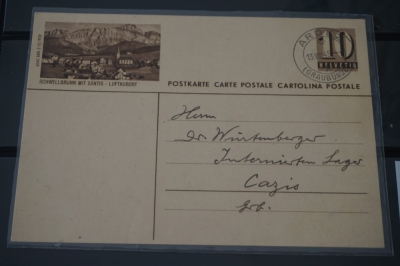 SCHWELLBRUNN MIT SÄNTIS - LUFTKURORT
POSTKARTE CARTE POSTALE CARTOLINA POSTALE
10
HELVETIA
(GRAUBÜND
Herrn
Dr. Würtenberger
Internierten Lager
Cazis
Grb.